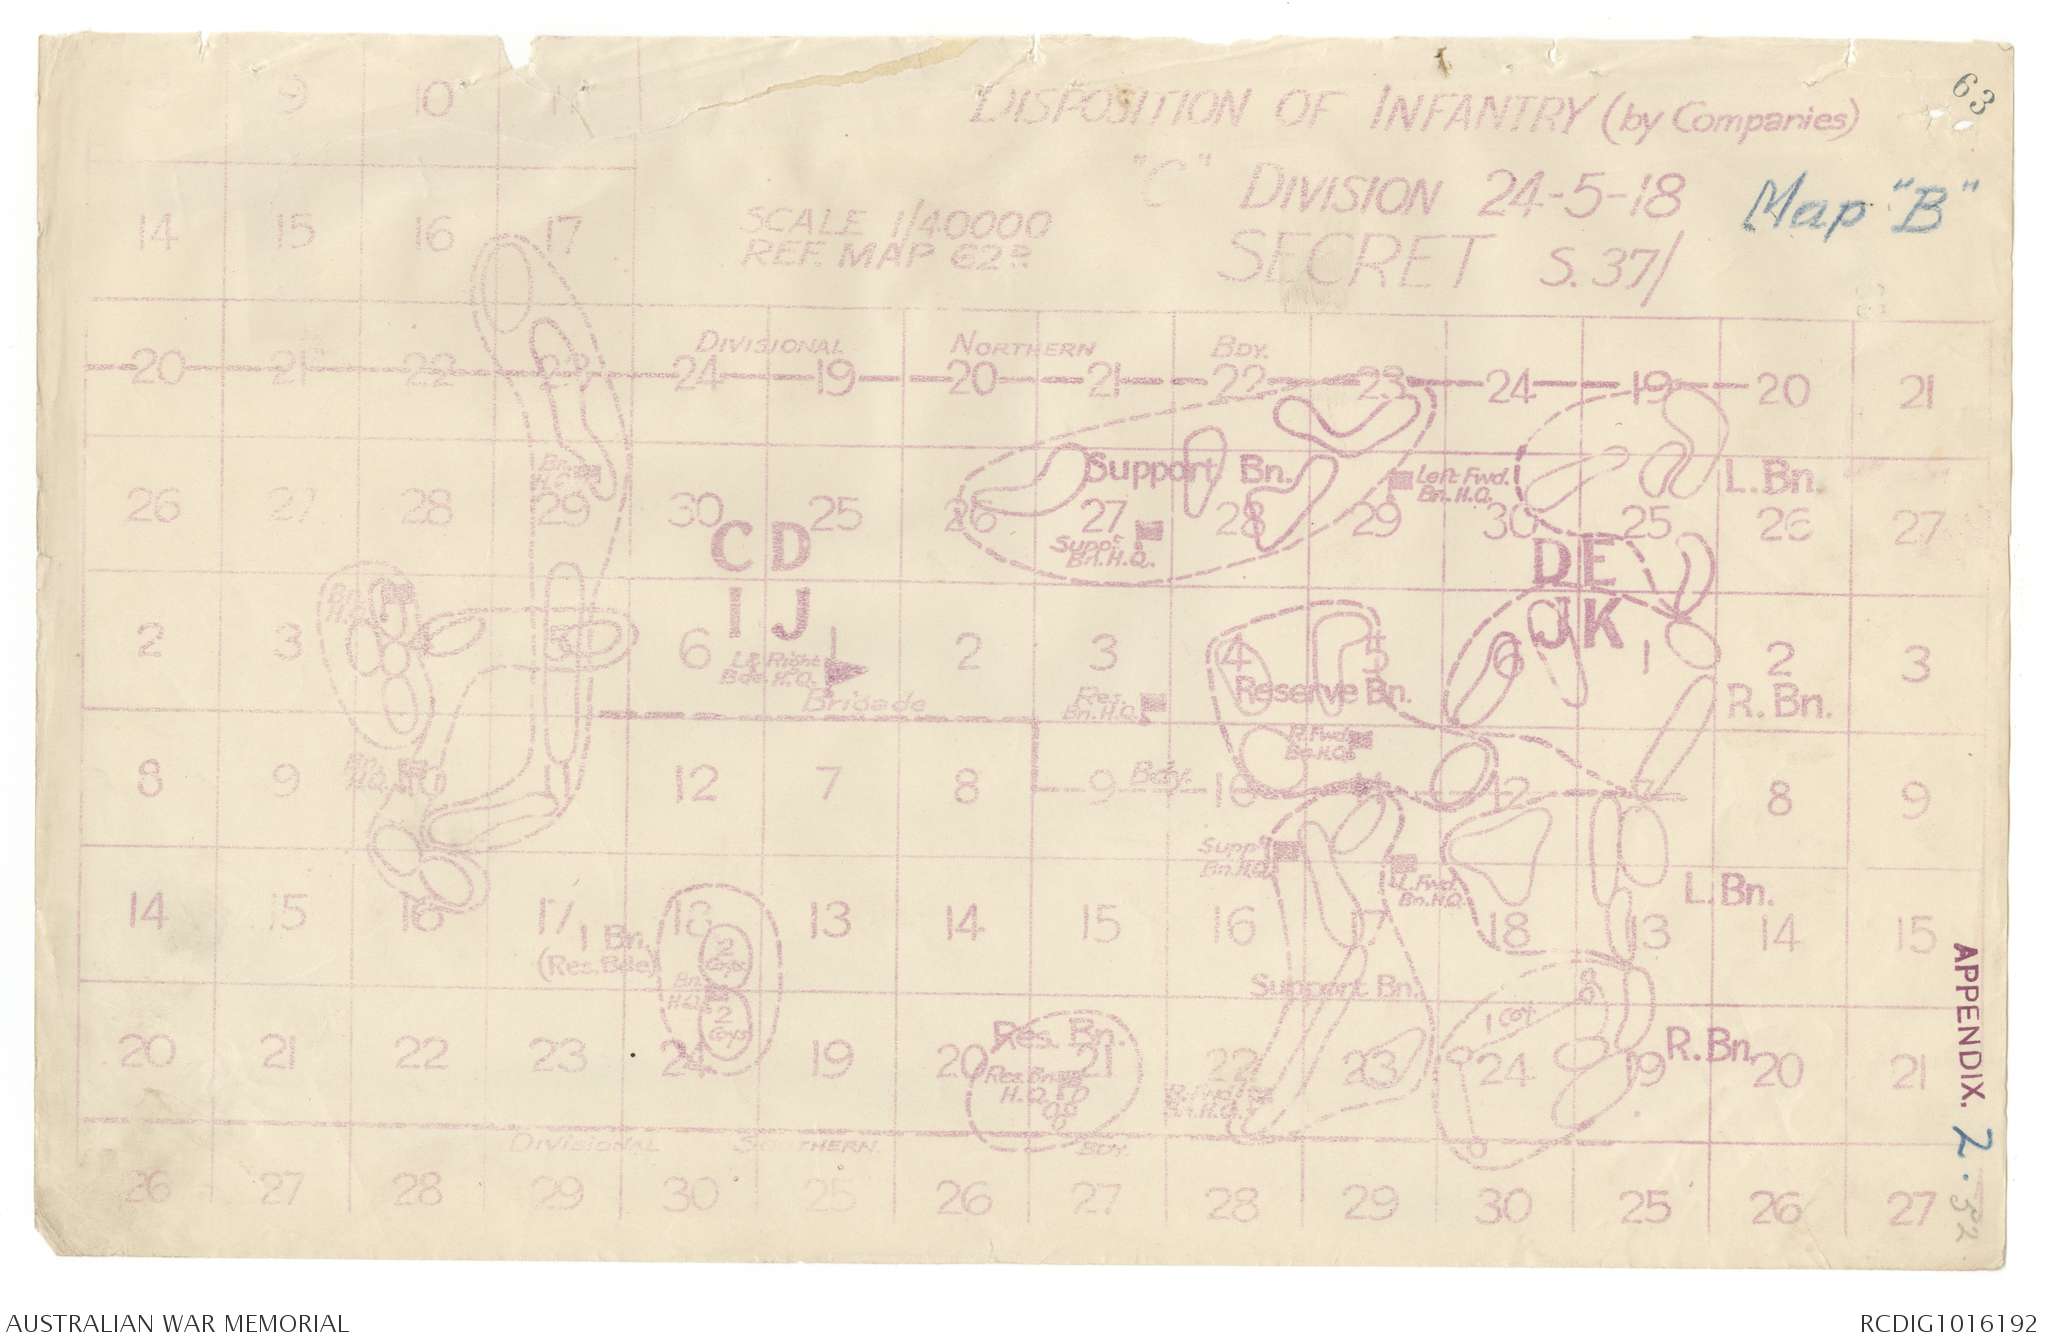 63
DISPOSITION OF INFANTRY (by Companies)
"C" DIVISION 24-5-18
Map "B"
SCALE 1/40000
REF. MAP 62D
SECRET S.37/
9 10 11
14 15 16 17
DIVISIONAL NORTHERN BDY.
20 21 22 23 24 19 20 21 22 23 24 19 20 21
Support Bn.
Left Fwd.
Bn. H.Q.
L. Bn.
Bn.
H.Q.
26 27 28 29 30 25 26 27 28 29 30 25 26 27
Supp.
Bn. H.Q.
C D
D E
I J
J K
Bn.
H.Q.
2 3 5 6 1 2 3 4 5 6 1 2 3
L & Right
Bde. H.Q.
Brigade
Res.
Bn. H.Q.
Reserve Bn.
R. Bn.
R. Fwd.
Bn. H.Q.
8 9 10 11 12 7 8 9 Bdy. 10 11 12 7 8 9
Bn.
H.Q.
Supp.
Bn. H.Q.
L. Fwd.
Bn. H.Q.
L. Bn.
14 15 16 17 18 13 14 15 16 17 18 13 14 15
1 Bn.
(Res. Bde)
2
Coys
Bn.
H.Q.
2
Coys
Support Bn.
1 Coy
Res. Bn.
R. Bn.
20 21 22 23 24 19 20 21 22 23 24 19 20 21
Res. Bn.
H.Q.
Bn. H.Q.
DIVISIONAL SOUTHERN BDY.
26 27 28 29 30 25 26 27 28 29 30 25 26 27
APPENDIX. 2.
AUSTRALIAN WAR MEMORIAL
RCDIG1016192